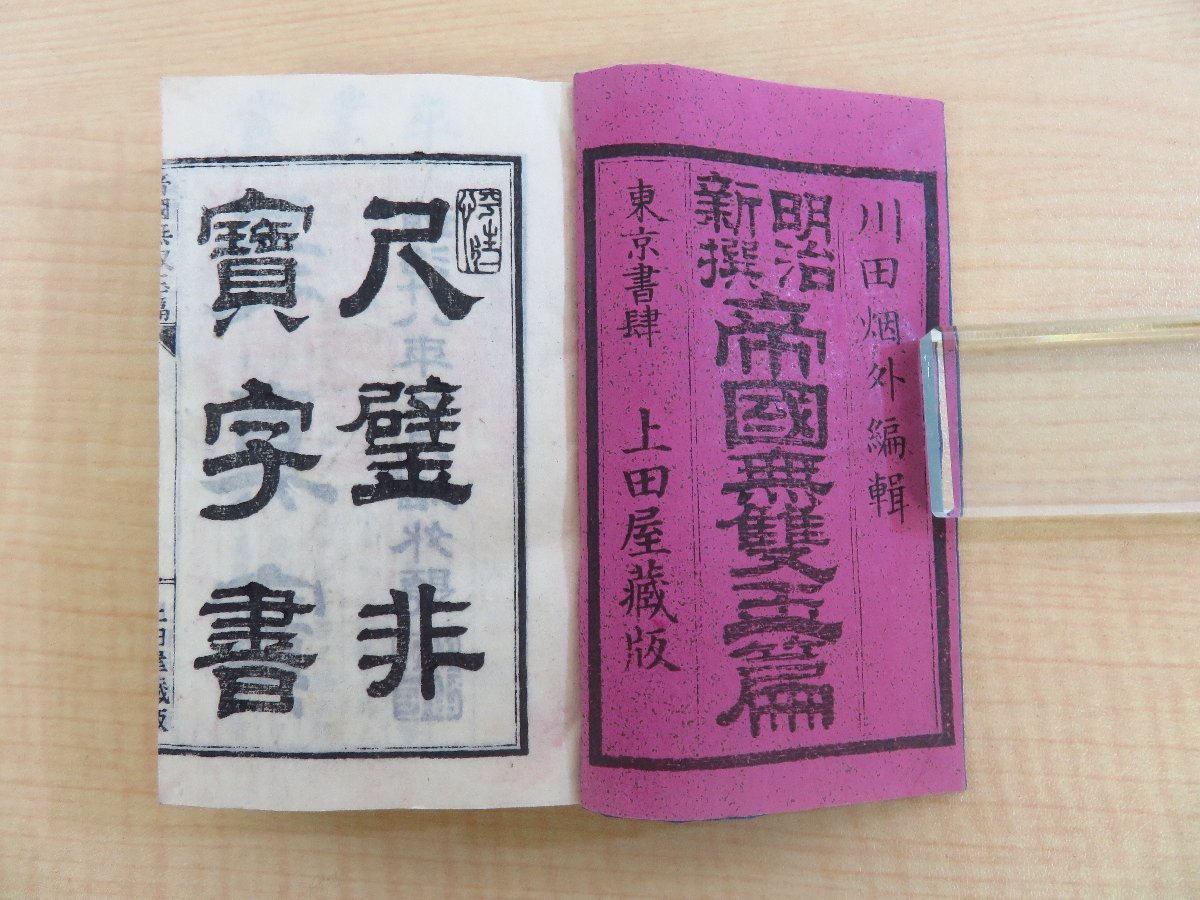 川田烟外編輯
明治
新撰
帝國無雙玉篇
東京書肆 上田屋藏版
尺璧非
寶字書
帝國無双玉篇
上田屋藏版